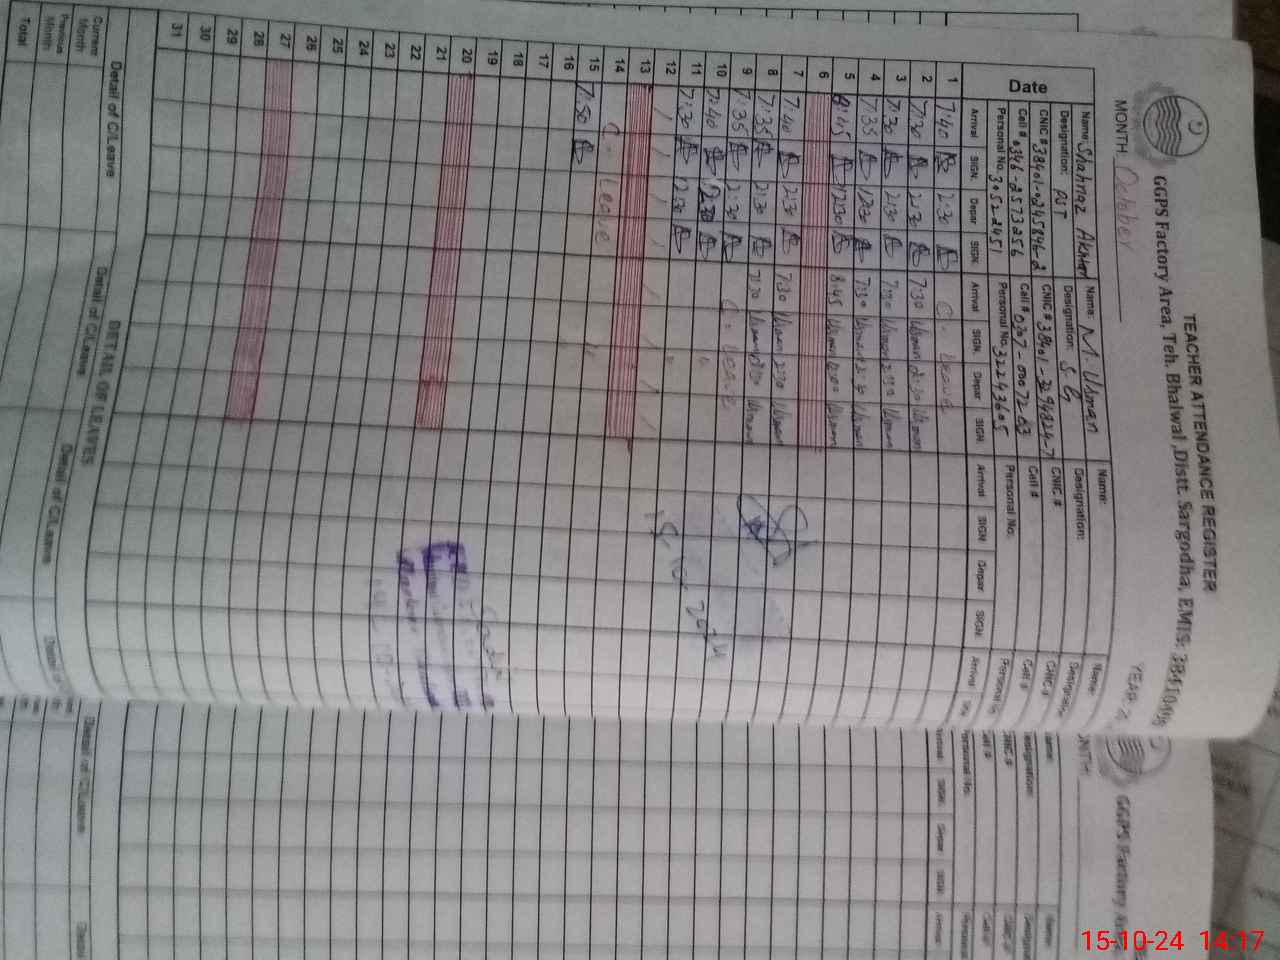 TEACHER ATTENDANCE REGISTER
GGPS Factory Area, Teh. Bhalwal, Distt. Sargodha, EMIS: 384104
MONTH: October YEAR 2
Date
Name: Shahnaz Akhter
Designation: PST
CNIC # 38401-0245846-2
Cell # 0346-8573256
Personal No. 30522451
Arrival SIGN. Depar SIGN.
Name: M. Usman
Designation: S.G
CNIC # 38401-3294824-7
Cell # 0307-0007263
Personal No. 32243605
Arrival SIGN. Depar SIGN.
Name:
Designation:
CNIC #
Cell #
Personal No.
Arrival SIGN Depar SIGN.
Name:
Designation
CNIC #
Cell #
Personal
Arrival
1 7:40 2:30 C. Leave
2 7:30 2:30 7:30 Usman 2:30 Usman
3 7:30 2:30 7:30 Usman 2:30 Usman
4 7:35 12:30 7:30 Usman 12:30 Usman
5 8:45 12:30 8:45 Usman 12:30 Usman
6
7 7:40 2:30 7:30 Usman 2:30 Usman
8 7:35 2:30 7:30 Usman 2:30 Usman
9 7:35 2:30 C. Leave
10 7:40 12:30 "
11 7:30 12:30 "
12
13
14 C. Leave
15 7:50 "
16
17
18
19
20
21
22
23
24
25
26
27
28
29
30
31
15-10-2024
DETAIL OF LEAVES
Detail of C/Leave Detail of C/Leave Detail of C/Leave
Current Month
Previous Month
Total
MONTH:
GGPS Factory
Name:
Designation:
CNIC #
Cell #
Personal No.
Arrival SIGN. Depar SIGN. Arrival
Detail of C/Leave
15-10-24 14:17